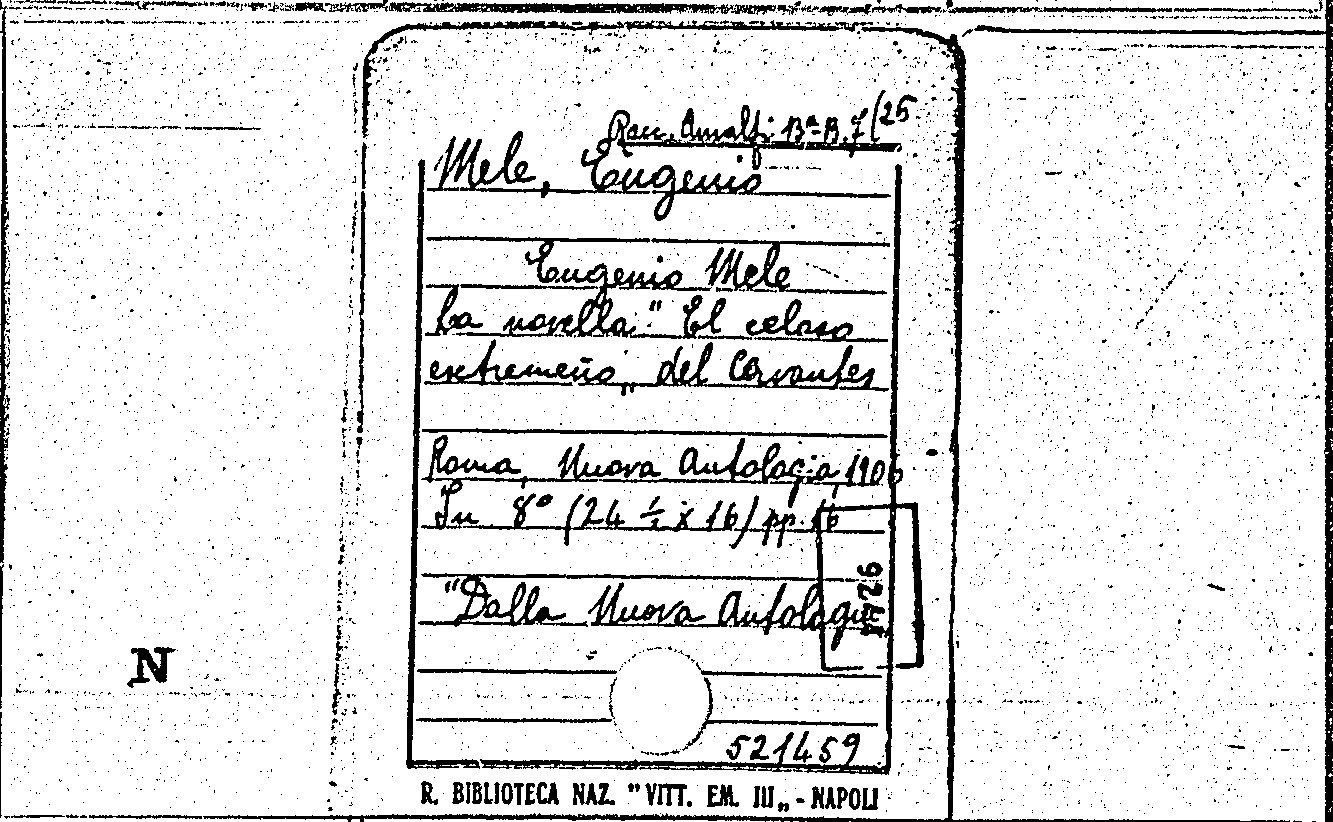 Racc. Amalfi Bª B. 7/25
Mele, Eugenio
Eugenio Mele
La novella: "El celoso
extremeño„ del Cervantes
Roma, Nuova Antologia, 1906
In 8° (24 ½ x 16) pp. 16
"Dalla Nuova Antologia
N
521459
R. BIBLIOTECA NAZ. "VITT. EM. III„ - NAPOLI